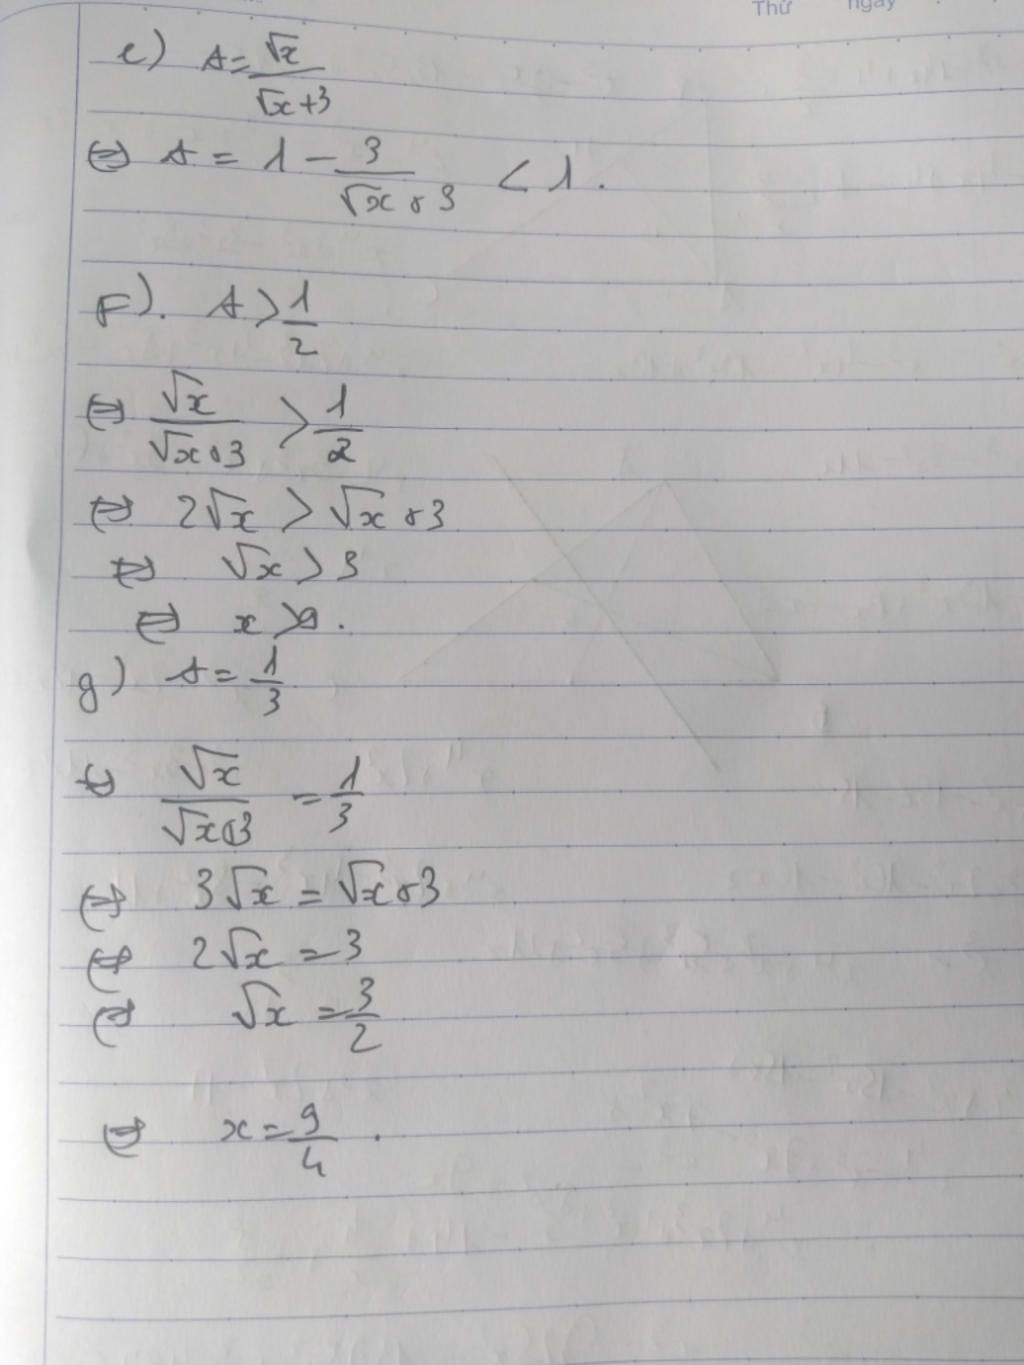 Thứ ngày
e) A = √x / (√x + 3)
⇔ A = 1 − 3 / (√x + 3) < 1.
F). A > 1/2
⇔ √x / (√x + 3) > 1/2
⇔ 2√x > √x + 3
⇔ √x > 3
⇔ x > 9.
g) A = 1/3
⇔ √x / (√x + 3) = 1/3
⇔ 3√x = √x + 3
⇔ 2√x = 3
⇔ √x = 3/2
⇔ x = 9/4.